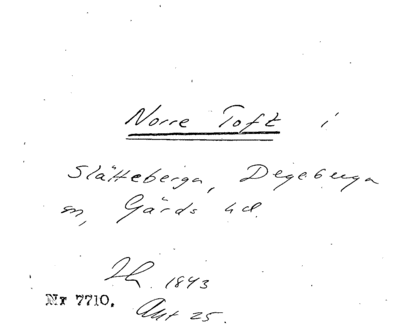 Norre Toft i
Slätteberga, Degeberga
sn, Gärds hd.
Lh. 1843
Nr 7710.
Akt 25.